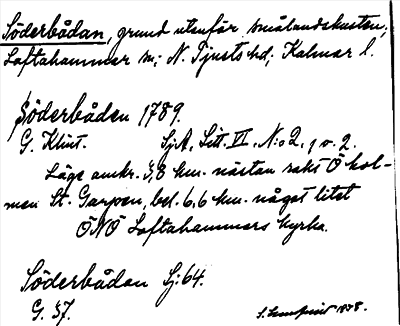 Söderbådan, grund utanför smålandskusten;
Loftahammar sn; N. Tjusts hd; Kalmar l.
Söderbåden 1789.
G. Klint. SjA, Litt. VI, N:o 2, 1 o. 2.
Läge omkr. 3,8 km. nästan rakt Ö hol-
men St. Garpen, bel. 6,6 km. något litet
ÖNÖ Loftahammars kyrka.
Söderbådan Sj: 64.
G. 37.
1938.